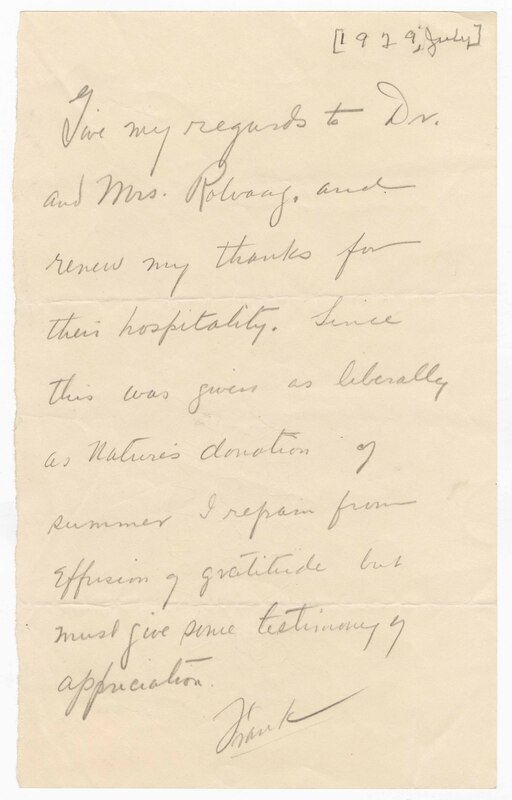 [1929, July]
Give my regards to Dr.
and Mrs. Rolvaag, and
renew my thanks for
their hospitality. Since
this was given as liberally
as Nature's donation of
summer I refrain from
effusion of gratitude but
must give some testimony of
appreciation.
Frank